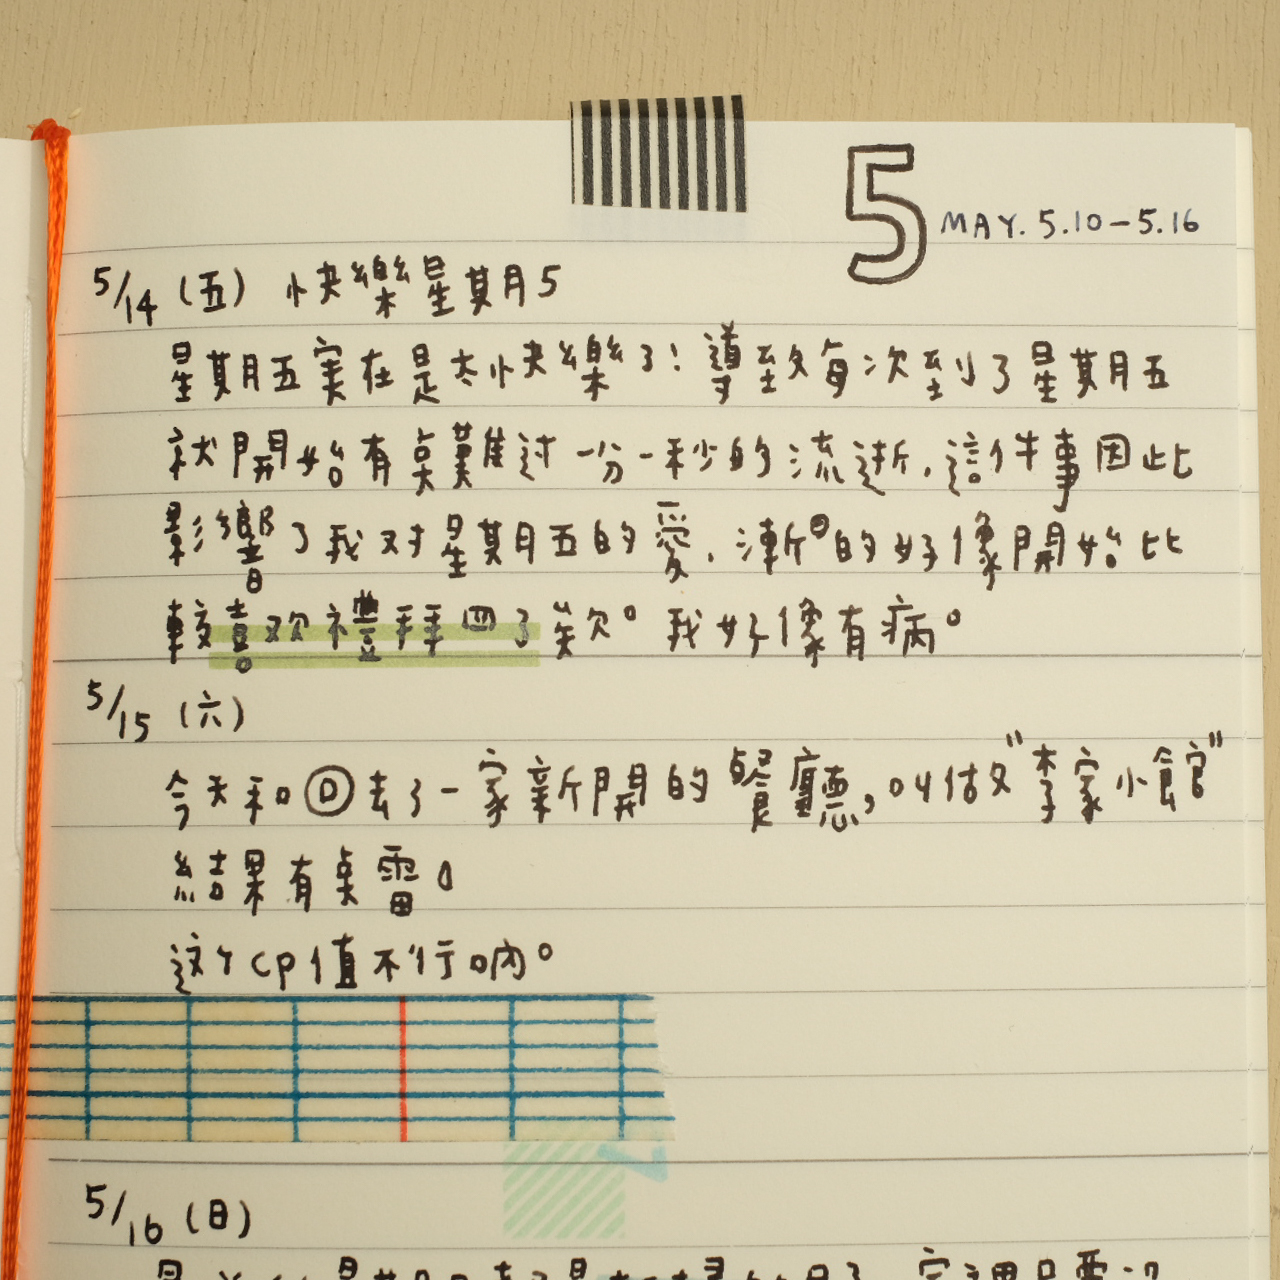 5 MAY. 5.10-5.16
5/14 (五) 快樂星期5
星期五実在是太快樂了! 導致每次到了星期五
就開始有桌難过一分一秒的流逝,這件事因此
影響了我对星期五的愛,漸的好像開始比
較喜欢禮拜四了欸。我好像有病。
5/15 (六)
今天和 D 去了一家新開的餐廳,叫做"李家小館"
結果有桌雷。
这个CP值不行吶。
5/16 (日)